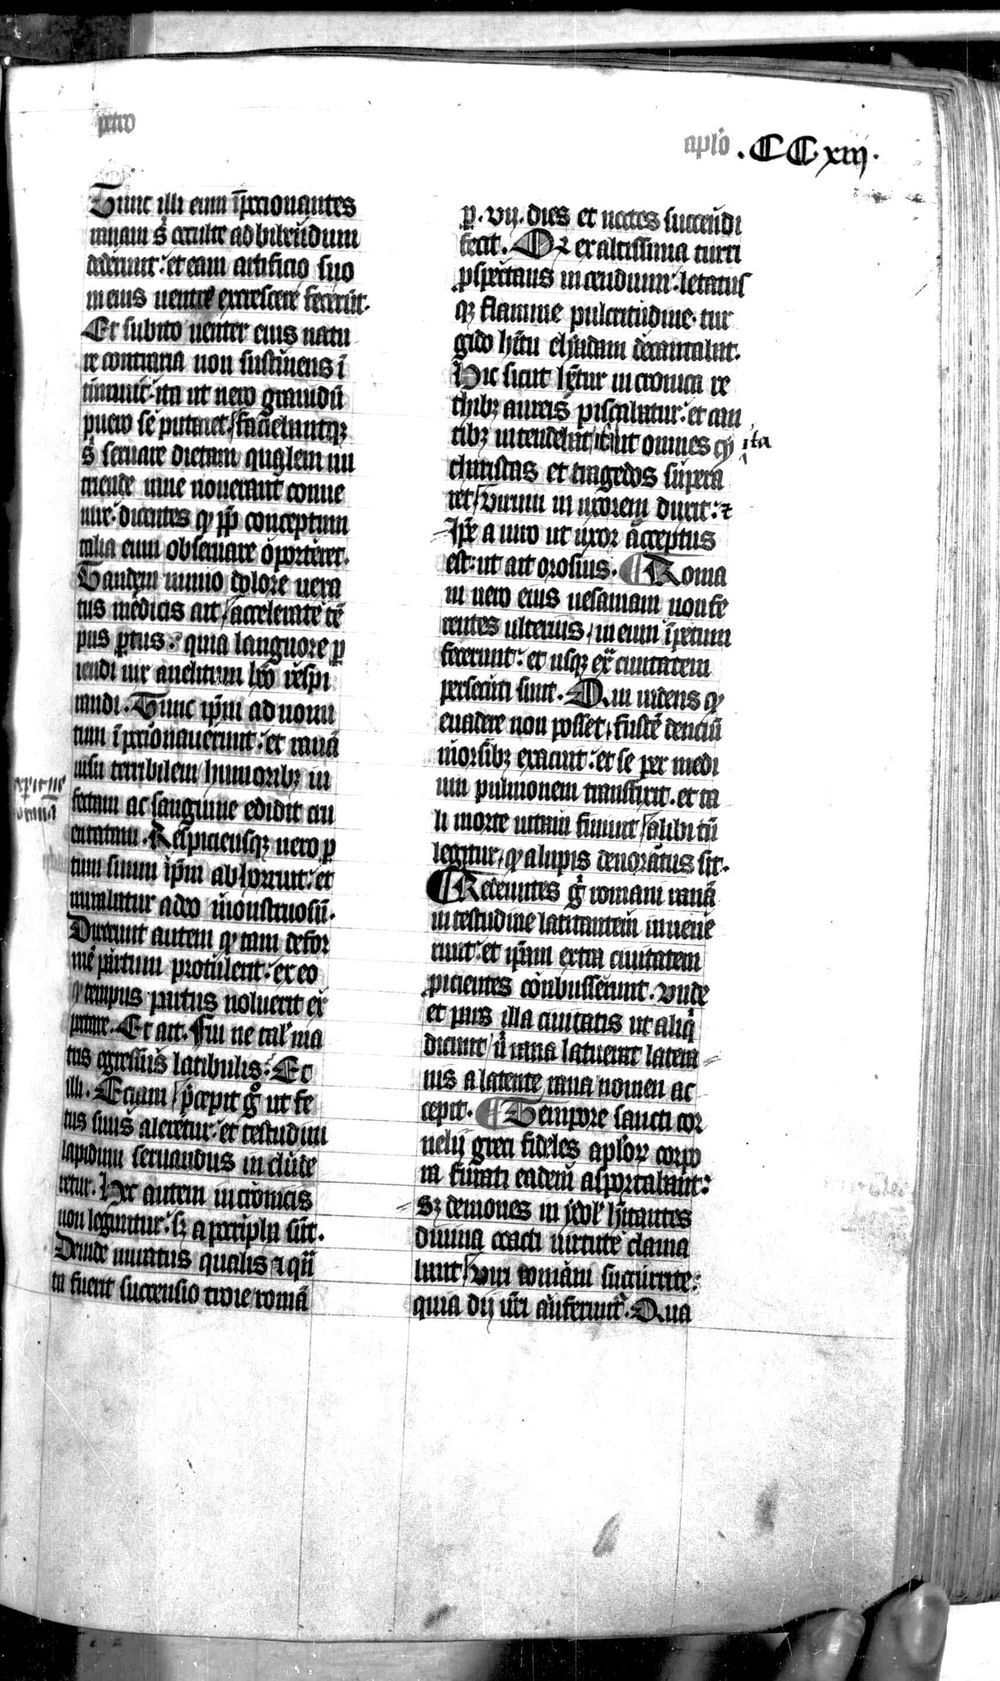 petro
aplo .CCxiij.
Tunc illi eum ip̄recionantes
ranam s; occulte ad bibendum
dederunt· et eam artificio suo
in eius uentre excrescere fecerūt·
Et subito uenter eius natu
re contraria non sustinens ī
tumuit· ita ut nero grauidū
puero se putaret faciebantq;
s; seruare dietam qualem nu
triende rane nouerant conue
nire· dicentes q̄ p̄p̄ conceptum
talia eum obseruare oporteret·
Tandem nimio dolore uexa
tus medicis ait accelerate tē
pus p̄tus· quia languore p̄
iendi uix anelitum h̄eo respi
randi. Tunc ip̄m ad uomi
tum īp̄ocionauerunt· et ranā
uisu terribilem humorib; in
fectam ac sanguine edidit cru
entatam. Respiciensq; nero p̄
tum suum ip̄m abhorruit· et
mirabatur adeo monstruosū·
Dixerunt autem q̄ tam defor
mē partum protulerit· ex eo
q̄ tempus partus noluerit ex
pectare. Et ait. Fui ne tal' ma
tus egressus latibulis· Et
illi. Etiam p̄cepit g° ut fe
tus suus aleretur· et testudini
lapidum seruandus in clude
retur. Hec autem in cronicis
non leguntur· s; apocripha sūt.
Deinde miratus qualis ⁊ quā
ta fuerit succensio troie romā
p̄ .vij. dies et noctes succendi
fecit. Qz ex altissima turri
p̄spectans incendium· letatus
q; flamme pulcritudine· tur
gido h̄itu elyadam decantabat.
Hic sicut h̄etur in cronica re
thib; aureis piscabatur· et can
tib; intendebat ita ut omnes cy
tharistas et tragedos supera
ret virum in uxorem duxit· ⁊
ip̄e a uiro ut uxor acceptus
est· ut ait orosius. Roma
ni nero eius uesaniam non fe
rentes ulterius in eum īpetum
fecerunt· et usq; ex̄ ciuitatem
persecuti sunt. Qui uidens q̄
euadere non posset, fustē dentiū
morsib; exacuit· et se per medi
um pulmonem transfixit. et ta
li morte uitam finiuit alibi tn̄
legitur, q̄ a lupis deuoratus sit.
Redeuntes g° romani ranā
in testudine latitantem inuene
runt· et ip̄am extra ciuitatem
p̄icientes conbusserunt. Vnde
et pars illa ciuitatis ut aliq̄
dicunt u° rana latuerat latera
nis a latente rana nomen ac
cepit. Tempore sancti cor
nelij greci fideles ap̄lor; corpo
ra furati eadem asportabant:
S; demones in ydol' h̄itantes
diuina coacti uirtute clama
bant Viri romani succurrite:
quia dij ur̄i auferunt̄. Qua
ita